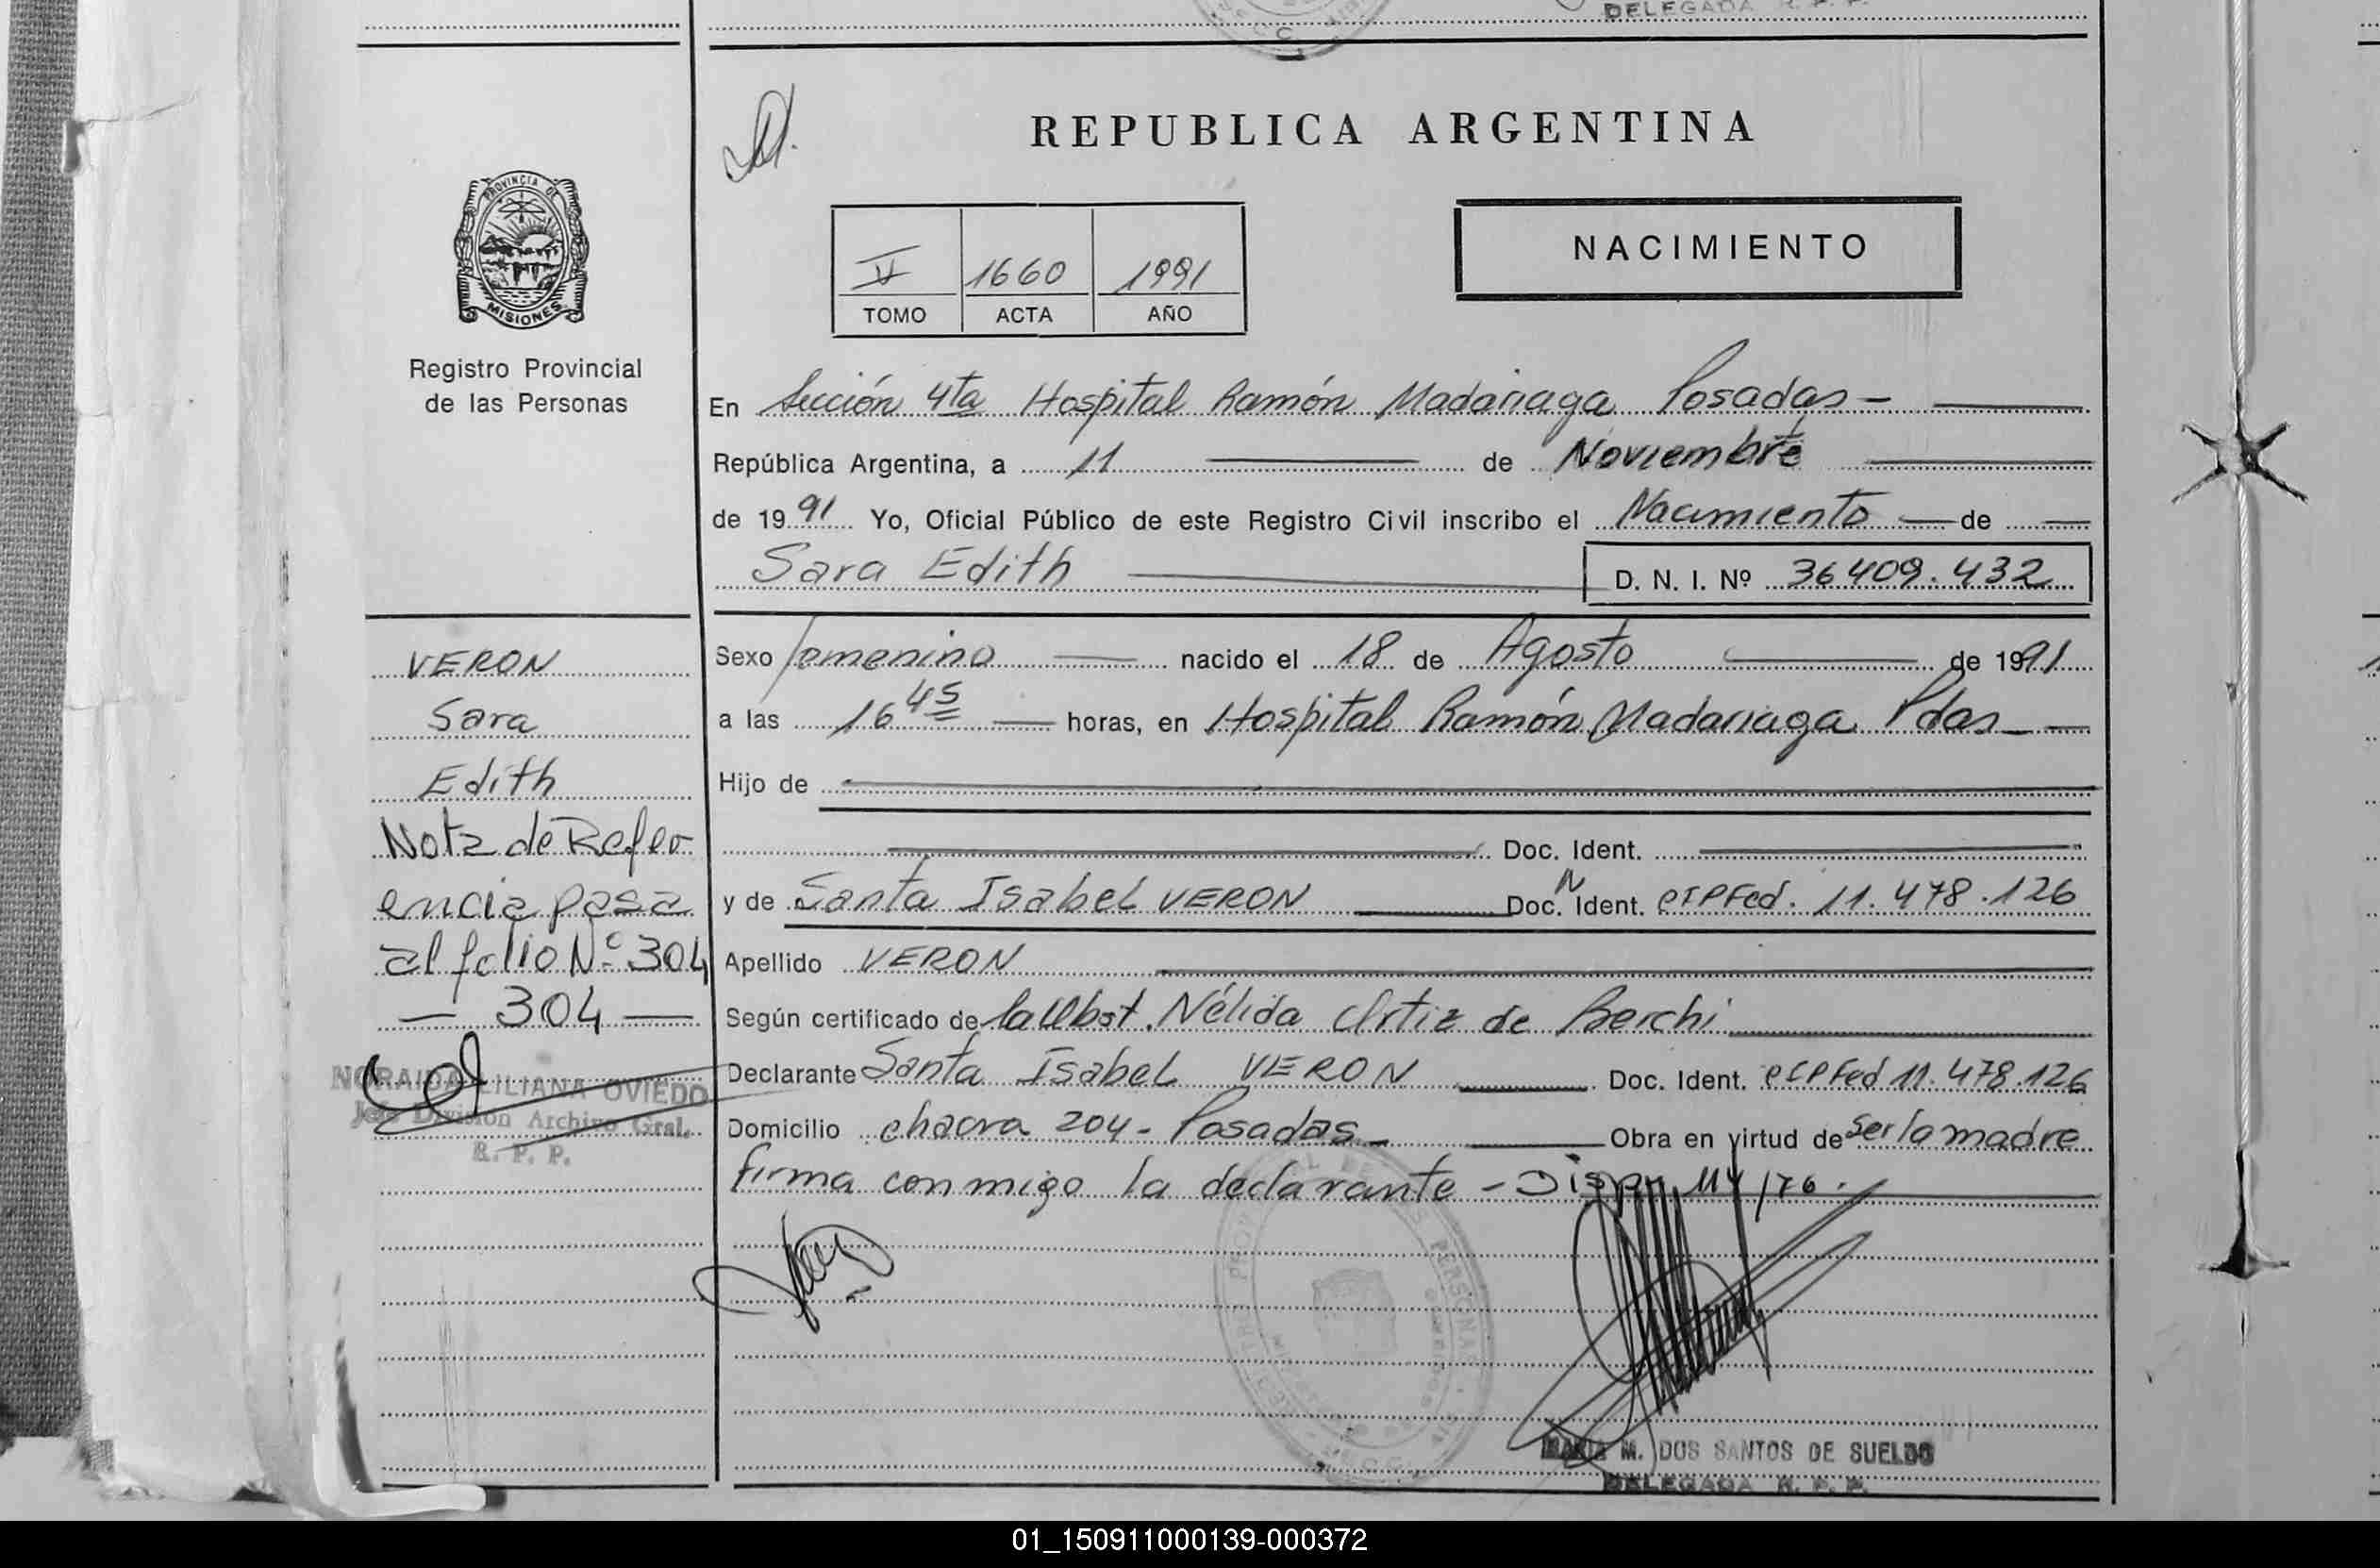 DELEGADA R. P. P.
REPUBLICA ARGENTINA
PROVINCIA DE
MISIONES
Registro Provincial
de las Personas
V 1660 1991
TOMO ACTA AÑO
NACIMIENTO
En Sección 4ta Hospital Ramón Madariaga Posadas-
República Argentina, a 11 de Noviembre
de 1991 Yo, Oficial Público de este Registro Civil inscribo el Nacimiento de
Sara Edith D. N. I. Nº 36409.432
VERON
Sara
Edith
Nota de Refer
encia pasa
al folio Nº 304
— 304 —
NORAIDA LILIANA OVIEDO
Jefe División Archivo Gral.
R. P. P.
Sexo femenino nacido el 18 de Agosto de 1991
a las 16 45 horas, en Hospital Ramón Madariaga Pdas
Hijo de
Doc. Ident.
y de Santa Isabel VERON Doc. N Ident. CIPFed. 11.478.126
Apellido VERON
Según certificado de la Obst. Nélida Ortiz de Berchi
Declarante Santa Isabel VERON Doc. Ident. CIPFed 11.478.126
Domicilio chacra 204- Posadas Obra en virtud de ser la madre
firma conmigo la declarante - Disp. 114/76.
MARIA M. DOS SANTOS DE SUELDO
DELEGADA R. P. P.
01_150911000139-000372